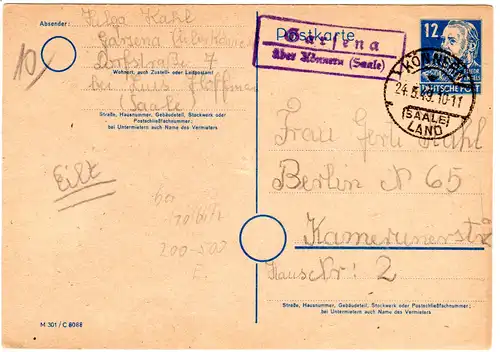 Absender:
Helga Kahl
Garsena
Dorfstraße 7
Wohnort, auch Zustell- oder Leitpostamt
bei
(Saale)
Straße, Hausnummer, Gebäudeteil, Stockwerk oder
Postschließfachnummer;
bei Untermietern auch Name des Vermieters
10
Eilt
200-500
M 301 / C 8088
Postkarte
Garsena
über Könnern (Saale)
12
DEUTSCHE POST
KÖNNERN
24.5.49.10-11
(SAALE)
LAND
Frau Kahl
Berlin N 65
Kamerunerstr
Haus Nr: 2
Straße, Hausnummer, Gebäudeteil, Stockwerk oder Postschließfachnummer;
bei Untermietern auch Name des Vermieters